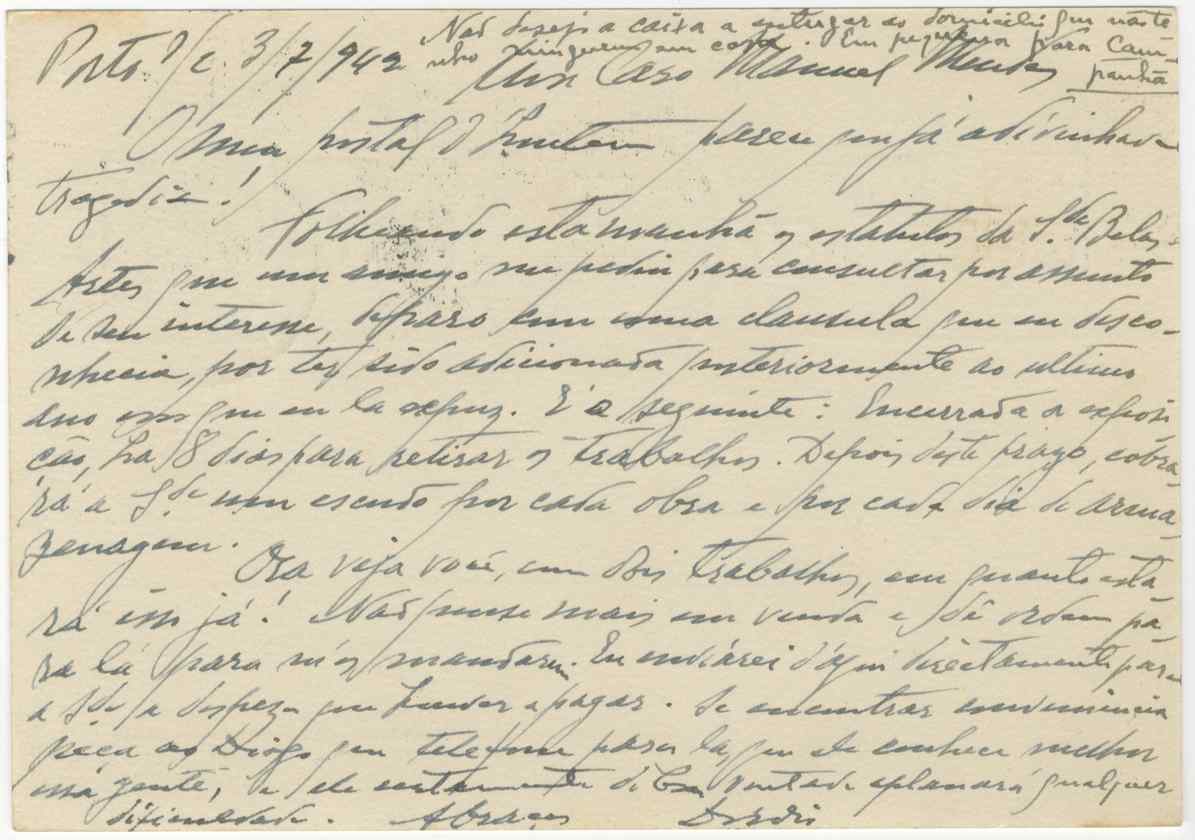 Não desejo a caixa a entregar ao domicilio que não te
nho ninguem em casa. Em pequena para Cam
panhã
Porto, 3/7/942
Meu Caro Manuel Mendes
O meu postal d'hontem parece que já adivinhava
tragedia!
Folheando esta manhã os estatutos da S.de Belas
Artes que um amigo me pediu para consultar por assunto
de seu interesse, deparo com uma clausula que eu desco-
nhecia, por ter sido adicionada posteriormente ao ultimo
ano em que eu la expuz. É a seguinte: Encerrada a exposi
ção, ha 8 dias para retirar os trabalhos. Depois deste prazo, cobra
rá a S.de um escudo por cada obra e por cada dia de arma-
zenagem.
Ora veja você, com dois trabalhos, em quanto esta
rá isso já! Não pense mais em venda e dê ordem pa
ra lá para m'os mandarem. Eu enviárei d'aqui diréctamente para
a S.de a despeza que houver a pagar. Se encontrar conveniencia
peça ao Diogo que telefone para la, que ele conhece melhor
essa gente, e ele certamente de boa vontade aplanará qualquer
dificuldade. Abraços